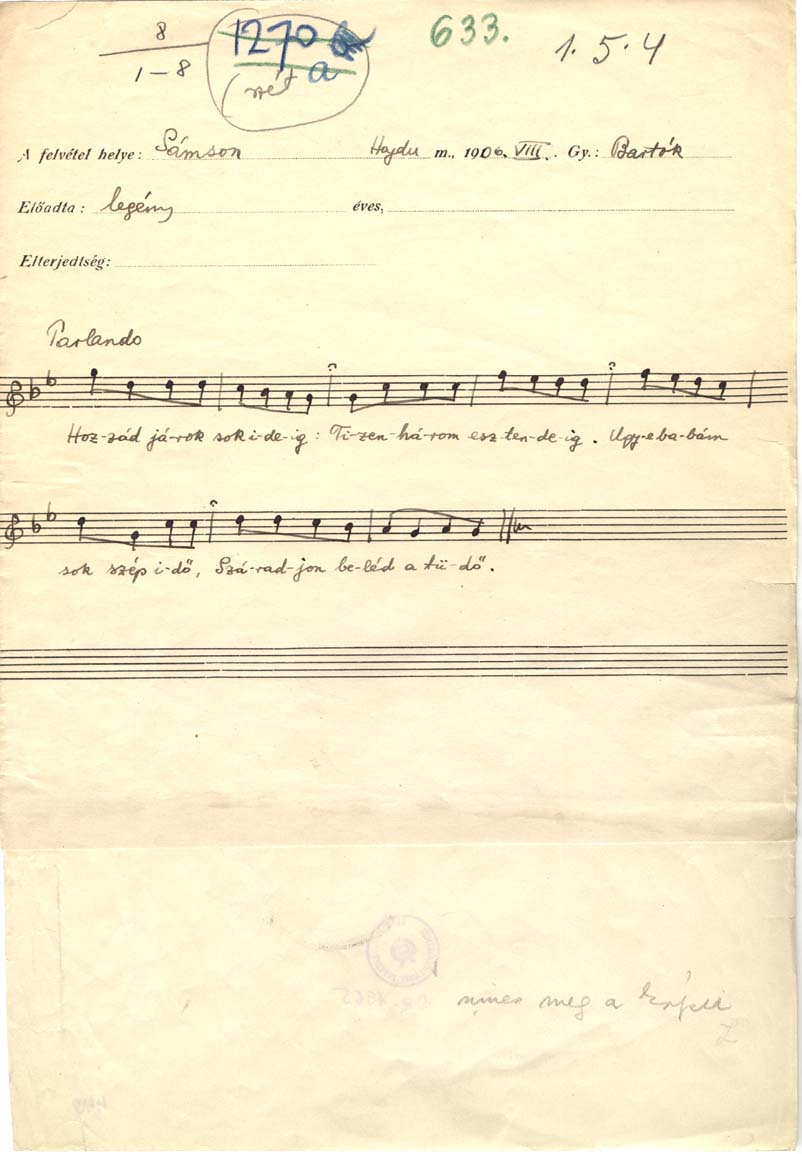 8 1270 633. 1. 5. 4
1–8 a
A felvétel helye: Sámson Hajdu m., 1906. VIII. Gy.: Bartók
Előadta: legény éves,
Elterjedtség:
Parlando
Hoz-zád já-rok sok i-de-ig: Ti-zen-há-rom esz-ten-de-ig. Ugy-e ba-bám
sok szép i-dő, Szá-rad-jon be-léd a tü-dő.
nincs meg a